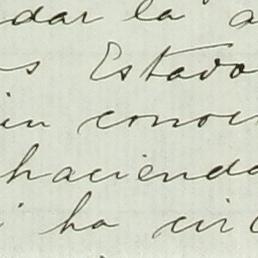 dar la a
s Estado
in conoci
haciendo
i ha cir